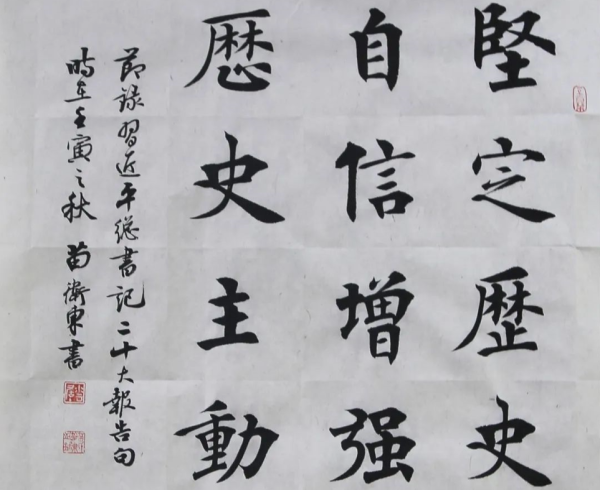 堅定歷史
自信增强
歷史主動
節録習近平總書記二十大報告句
時在壬寅之秋 苗衛東書